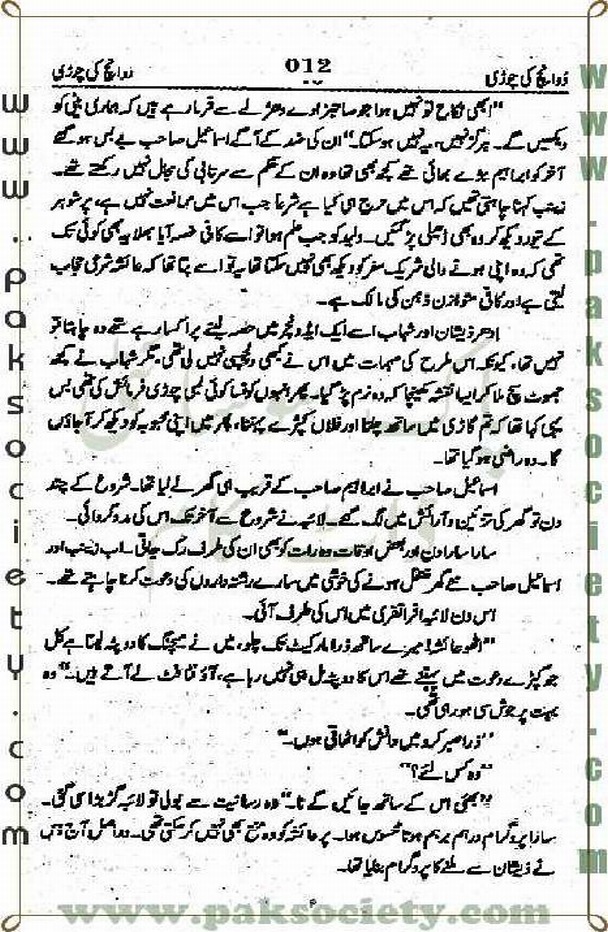 دوانچ کی چوڑی 012 دوانچ کی چوڑی
"ابھی نکاح تو نہیں ہوا جو صاحبزادے دھڑلے سے فرما رہے ہیں کہ ہماری بیٹی کو
دیکھیں گے۔ ہرگز نہیں، یہ نہیں ہو سکتا۔" ان کی ضد کے آگے اسماعیل صاحب بے بس ہو گئے
آخر کو ابراہیم بڑے بھائی تھے کچھ بھی تھا وہ ان کے حکم سے سرتابی کی مجال نہیں رکھتے تھے۔
زینب کہنا چاہتی تھیں کہ اس میں حرج ہی کیا ہے شرعاً جب اس میں ممانعت نہیں ہے، پر شوہر
کے تیور دیکھ کر وہ بھی ڈھیلی پڑ گئیں۔ ولید کو جب علم ہوا تو اسے کافی غصہ آیا بھلا یہ بھی کوئی تک
تھی کہ وہ اپنی ہونے والی شریک سفر کو دیکھ بھی نہیں سکتا تھا یہ تو اسے پتا تھا کہ عائشہ شرعی حجاب
لیتی ہے اور کافی متوازن ذہن کی مالک ہے۔
ادھر ذیشان اور شہاب اسے ایک ایڈونچر میں حصہ لینے پر اکسا رہے تھے وہ چاہتا تو
نہیں تھا، کیونکہ اس طرح کی مہمات میں اس نے کبھی دلچسپی نہیں لی تھی، مگر شہاب نے کچھ
جھوٹ سچ ملا کر ایسا نقشہ کھینچا کہ وہ نرم پڑ گیا۔ پھر انہوں کونسا کوئی لمبی چوڑی فرمائش کی تھی بس
یہی کہا تھا کہ تم گاڑی میں ساتھ چلنا اور فلاں کپڑے پہننا، پھر میں اپنی محبوبہ کو دیکھ کر آ جاؤں
گا۔ وہ راضی ہو گیا تھا۔
اسماعیل صاحب نے ابراہیم صاحب کے قریب ہی گھر لے لیا تھا۔ شروع کے چند
دن تو گھر کی تزئین و آرائش میں لگ گئے۔ لائبہ نے شروع سے آخر تک اس کی مدد کروائی۔
سارا سارا دن اور بعض اوقات وہ رات کو بھی ان کی طرف رک جاتی۔ اب زینب اور
اسماعیل صاحب نئے گھر منتقل ہونے کی خوشی میں سارے رشتہ داروں کی دعوت کرنا چاہتے تھے۔
اس دن لائبہ افراتفری میں اس کی طرف آئی۔
"اٹھو عائشہ! میرے ساتھ ذرا مارکیٹ تک چلو، میں نے میچنگ کا دوپٹہ لینا ہے کل
جو کپڑے دعوت میں پہننے تھے اس کا دوپٹہ مل ہی نہیں رہا ہے، آؤ فٹافٹ لے آتے ہیں۔" وہ
بہت پرجوش سی ہو رہی تھی۔
"ذرا صبر کرو میں دانش کو اٹھاتی ہوں۔"
"وہ کس لئے؟"
"بھئی اس کے ساتھ جائیں گے نا۔" وہ رسانیت سے بولی تو لائبہ گڑبڑا سی گئی۔
سارا پروگرام درہم برہم ہوتا محسوس ہوا۔ پر عائشہ کو وہ منع بھی نہیں کر سکتی تھی۔ دراصل آج
نے ذیشان سے ملنے کا پروگرام بنایا تھا۔
www.paksociety.com
www.paksociety.com
www.paksociety.com